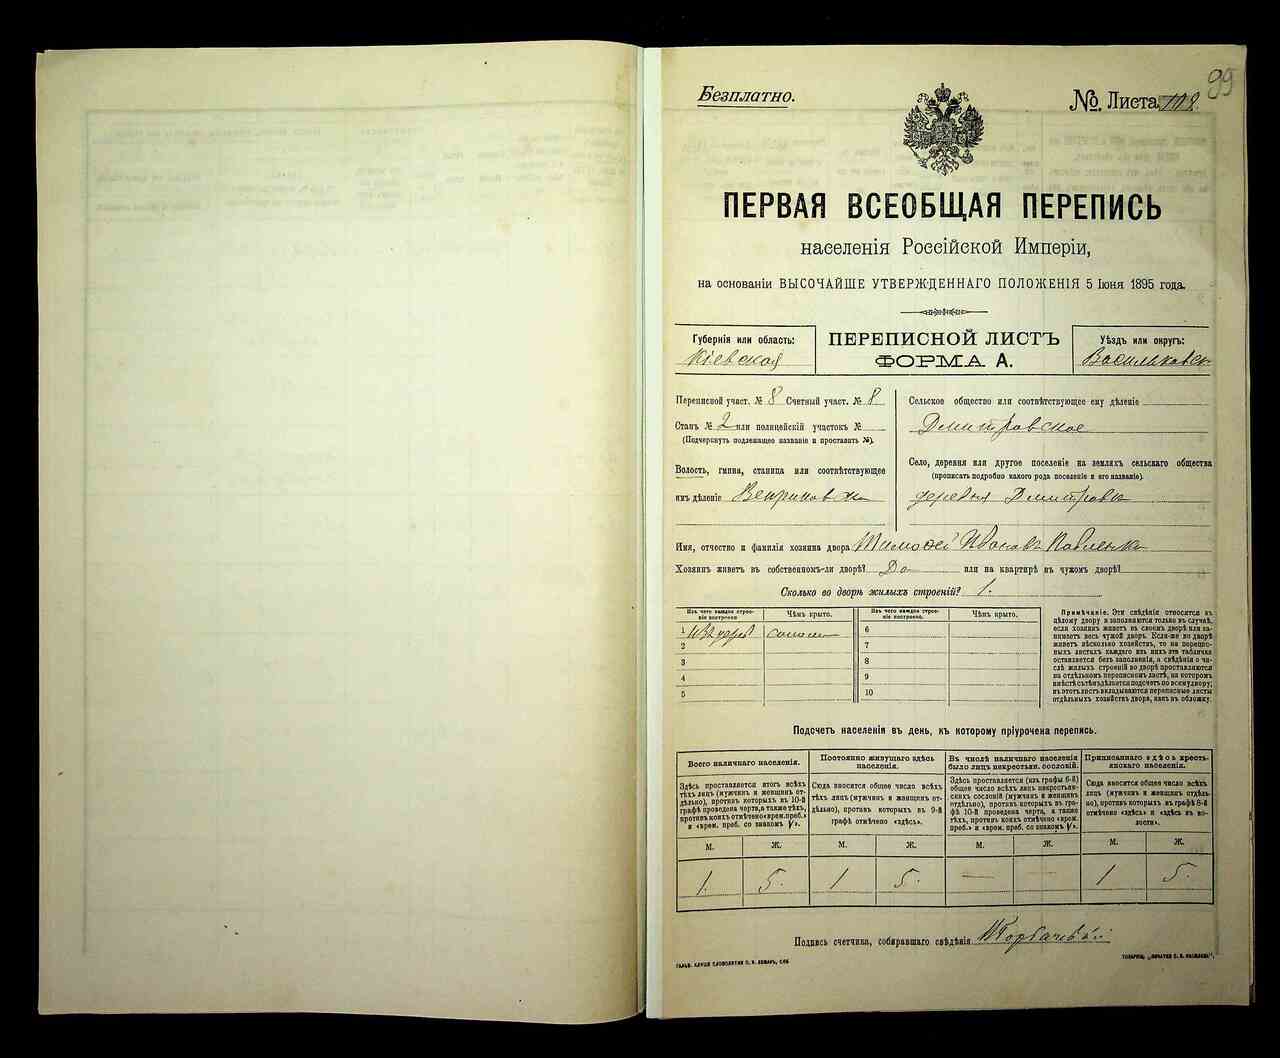 99
Безплатно.
№ Листа 118.
ПЕРВАЯ ВСЕОБЩАЯ ПЕРЕПИСЬ
населенія Россійской Имперіи,
на основаніи ВЫСОЧАЙШЕ УТВЕРЖДЕННАГО ПОЛОЖЕНІЯ 5 Іюня 1895 года.
Губернія или область:
Кіевская
ПЕРЕПИСНОЙ ЛИСТЪ
ФОРМА А.
Уѣздъ или округъ:
Васильковск
Переписной участ. № 8 Счетный участ. № 8
Станъ № 2 или полицейскій участокъ №
(Подчеркнуть подлежащее названіе и проставить №).
Волость, гмина, станица или соотвѣтствующее
имъ дѣленіе
Сельское общество или соотвѣтствующее ему дѣленіе
Дмитровское
Село, деревня или другое поселеніе на земляхъ сельскаго общества
(прописать подробно какого рода поселеніе и его названіе).
деревня Дмитровка
Имя, отчество и фамилія хозяина двора Тимофей Ивановъ Павленко
Хозяинъ живетъ въ собственномъ-ли дворѣ? Да или на квартирѣ въ чужомъ дворѣ?
Сколько во дворѣ жилыхъ строеній? 1.
Изъ чего каждое строеніе построено
Чѣмъ крыто.
Изъ чего каждое строеніе построено.
Чѣмъ крыто.
1 изъ дерев солом
2
3
4
5
6
7
8
9
10
Примѣчаніе. Эти свѣдѣнія относятся къ
цѣлому двору и заполняются только въ случаѣ,
если хозяинъ живетъ въ своемъ дворѣ или занимаетъ
весь чужой дворъ. Если-же во дворѣ
живетъ нѣсколько хозяйствъ, то на переписныхъ
листахъ каждаго изъ нихъ эта табличка
оставляется безъ заполненія, а свѣдѣнія о числѣ
жилыхъ строеній во дворѣ проставляются
на отдѣльномъ переписномъ листѣ, на которомъ
вмѣстѣ съ тѣмъ дѣлается подсчетъ по всему двору;
въ этотъ листъ вкладываются переписные листы
отдѣльныхъ хозяйствъ двора, какъ въ обложку.
Подсчетъ населенія въ день, къ которому пріурочена перепись.
Всего наличнаго населенія.
Здѣсь проставляется итогъ всѣхъ
тѣхъ лицъ (мужчинъ и женщинъ отдѣльно),
противъ которыхъ въ 10-й
графѣ проведена черта, а также тѣхъ,
противъ коихъ отмѣчено «врем. преб.»
и «врем. преб. со знакомъ V».
Постоянно живущаго здѣсь
населенія.
Сюда вносится общее число всѣхъ
тѣхъ лицъ (мужчинъ и женщинъ отдѣльно),
противъ которыхъ въ 9-й
графѣ отмѣчено «здѣсь».
Въ числѣ наличнаго населенія
было лицъ некрестьян. сословій.
Здѣсь проставляется (изъ графы 6-й)
общее число всѣхъ лицъ некрестьянскихъ
сословій (мужчинъ и женщинъ
отдѣльно), противъ которыхъ въ графѣ
10-й проведена черта, а также
тѣхъ, противъ коихъ отмѣчено «врем.
преб.» и «врем. преб. со знакомъ V».
Приписаннаго здѣсь крестьянскаго
населенія.
Сюда вносится общее число всѣхъ
лицъ (мужчинъ и женщинъ отдѣльно),
противъ которыхъ въ графѣ 8-й
отмѣчено «здѣсь» и «здѣсь въ волости».
М. Ж. М. Ж. М. Ж. М. Ж.
1. 5. 1 5. — — 1 5.
Подпись счетчика, собиравшаго свѣдѣнія